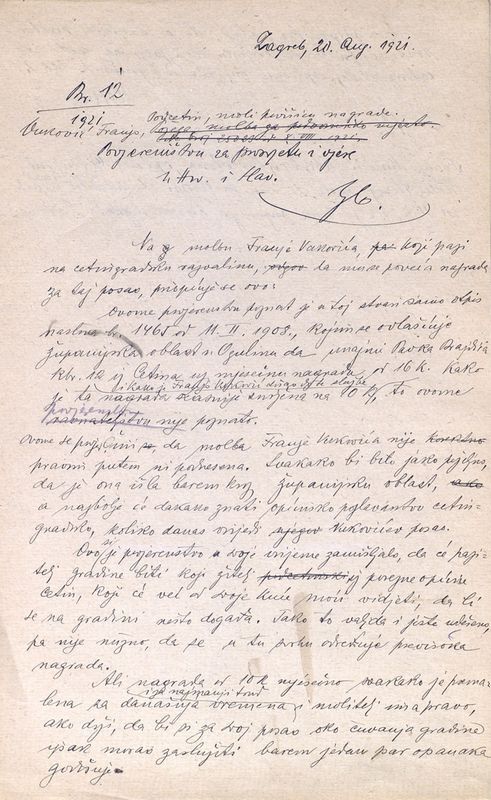 Zagreb, 20. Aug. 1921.
Br. 12
1921
Podcetin, moli povišicu nagrade.
Vuković Franjo,
Povjereništvu za prosvjetu i vjere
u Hrv. i Slav.
Zb.
Na molbu Franje Vukovića, koji pazi
na cetingradsku razvalinu, da mu se poveća nagrada
za taj posao, priopćuje se ovo:
Ovome povjerenstvu poznat je u toj stvari samo otpis
naslova br. 1465 od 11. II. 1908., kojim se ovlašćuje
županijska oblast u Ogulinu da unajmi Pavka Brajdića
kbr. 12 iz Cetina uz mjesečnu nagradu od 16 K. Kako
i kako je Franjo Vuković dugo u toj službi
je ta nagrada kasnije snižena na 10 K, to ovome
povjerenstvu
ravnateljstvu nije poznato.
Ovome se pričini, da molba Franje Vukovića nije
pravnim putem ni podnesena. Svakako bi bilo jako poželjno,
da je ona išla barem kroz županijsku oblast,
a najbolje će dakako znati općinsko poglavarstvo cetin-
gradsko, koliko danas vrijedi Vukovićev posao.
Ovo je povjerenstvo u svoje vrijeme zamišljalo, da će pazi-
telj gradine biti koji žitelj porezne općine
Cetin, koji će već od svoje kuće moći vidjeti, da li
se na gradini nešto događa. Tako to valjda i jeste udešeno,
pa nije nužno, da se u tu svrhu određuje previsoka
nagrada.
Ali nagrada od 10 K mjesečno svakako je prema-
i za najmanji trud
lena za današnja vremena i molitelj ima pravo,
ako drži, da bi si za svoj posao oko čuvanja gradine
ipak morao zaslužiti barem jedan par opanaka
godišnje.